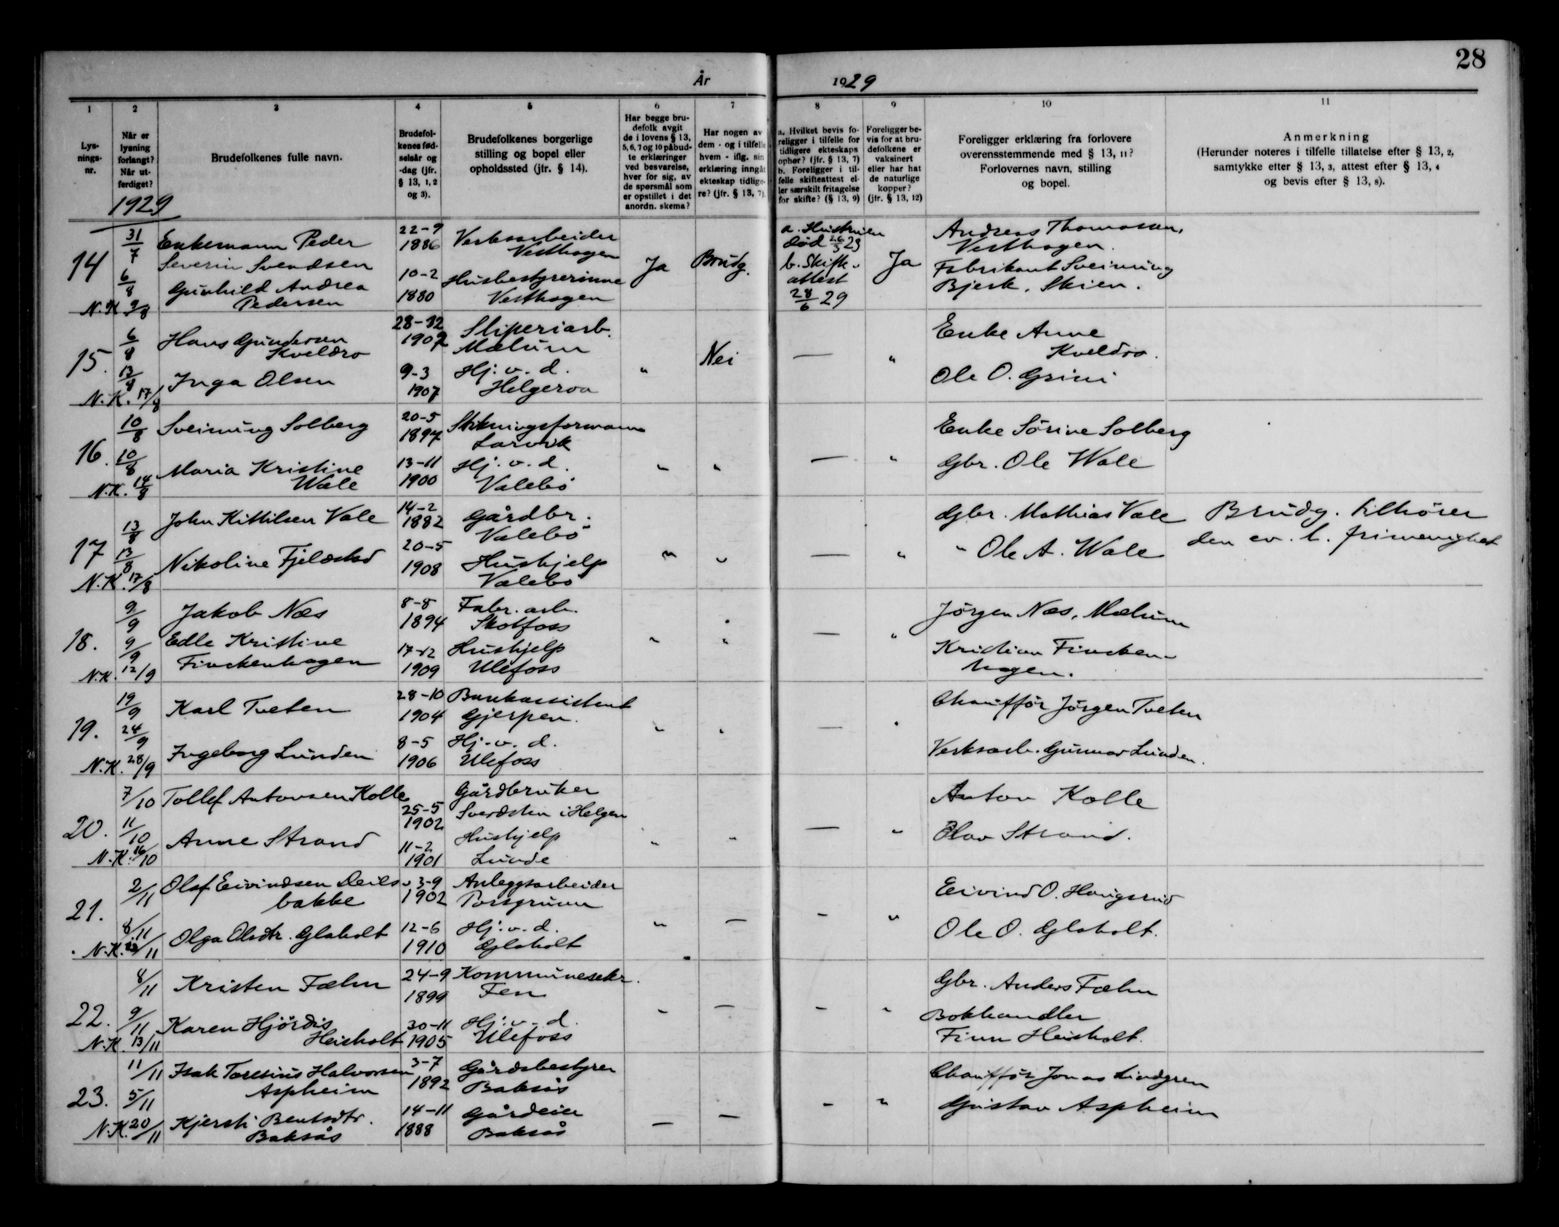 28
År 1929
1
2
3
4
5
6
7
8
9
10
11
Lys-
nings-
nr.
Når er
lysning
forlangt?
Når ut-
ferdiget?
Brudefolkenes fulle navn.
Brudefol-
kenes fød-
selsår og
-dag (jfr.
§ 13, 1, 2
og 3).
Brudefolkenes borgerlige
stilling og bopel eller
opholdssted (jfr. § 14).
Har begge bru-
defolk avgit
de i lovens § 13,
5, 6, 7 og 10 påbud-
te erklæringer
ved besvarelse,
hver for sig, av
de spørsmål som
er opstillet i det
anordn. skema?
Har nogen av
dem - og i tilfelle
hvem - iflg. sin
erklæring inngått
ekteskap tidlige-
re? (jfr. § 13, 7).
a. Hvilket bevis fo-
religger i tilfelle for
tidligere ekteskaps
ophør? (jfr. § 13, 7)
b. Foreligger i til-
felle skifteattest el-
ler særskilt fritagelse
for skifte? (§ 13, 9)
Foreligger be-
vis for at bru-
defolkene er
vaksinert
eller har hat
de naturlige
kopper?
(jfr. § 13, 12)
Foreligger erklæring fra forlovere
overensstemmende med § 13, 11?
Forlovernes navn, stilling
og bopel.
Anmerkning
(Herunder noteres i tilfelle tillatelse efter § 13, 2,
samtykke etter § 13, 3, attest efter § 13, 4
og bevis efter § 13, 8).
1929
14
31/7
6/8
N.K. 9/8
Enkemann Peder
Severin Svendsen
Gunhild Andrea
Pedersen
22-9
1886
10-2
1880
Verksarbeider
Vesthagen
Husbestyrerinne
Vesthagen
Ja
Brudg.
a. Hustruen
død 26/3 23
b. Skifte-
attest
28/6 29
Ja
Andreas Thomassen,
Vesthagen.
Fabrikant Sveinung
Bjerk, Skien.
15.
6/8
13/8
N.K. 17/8
Hans Gunderson
Kveldro
Inga Olsen
28-12
1907
9-3
1907
Sliperiarb.
Mælum
Hj. v. d.
Helgeroa
"
Nei
—
"
Enke Anne
Kveldro.
Ole O. Grini
16.
10/8
10/8
N.K. 14/8
Sveinung Solberg
Maria Kristine
Wale
20-5
1897
13-11
1900
Stikningsformann
Larvik
Hj. v. d.
Valebø
"
"
—
"
Enke Sørine Solberg
Gbr. Ole Wale
17
13/8
13/8
N.K. 17/8
John Kittilsen Vale
Nikoline Fjeldstad
14-2
1882
20-5
1908
Gårdbr.
Valebø
Hushjelp
Valebø
"
"
—
"
Gbr. Mathias Vale
" Ole A. Wale
Brudg. tilhører
den ev. l. frimenighet
18.
9/9
9/9
N.K. 12/9
Jakob Næs
Edle Kristine
Finckenhagen
8-8
1894
17-12
1909
Fabr. arb.
Skotfoss
Hushjelp
Ulefoss
"
"
—
"
Jørgen Næs, Mælum
Kristian Fincken-
hagen.
19.
19/9
24/9
N.K. 28/9
Karl Tveten
Ingeborg Lunden
28-10
1904
8-5
1906
Bankassistent
Gjerpen.
Hj. v. d.
Ulefoss
"
"
—
"
Chauffør Jørgen Tveten
Verksarb. Gunnar Lunden.
20.
7/10
11/10
N.K. 16/10
Tollef Antonsen Kolle
Anne Strand
25-5
1902
11-2
1901
Gårdbruker
Sverdsten i Helgen
Hushjelp
Lunde
"
"
—
"
Anton Kolle
Olav Strand.
21.
2/11
8/11
N.K. 22/11
Olaf Eivindsen Deils-
bakke
Olga Olsdtr. Glaholt
3-9
1902
12-6
1910
Anleggsarbeider
Porsgrunn
Hj. v. d.
Glaholt
"
—
-
"
Eivind O. Haugsrud
Ole O. Glaholt.
22.
8/11
9/11
N.K. 13/11
Kristen Fæhn
Karen Hjørdis
Heisholt
24-9
1899
30-11
1905
Kommunesekr.
Fen
Hj. v. d.
Ulefoss
"
—
-
"
Gbr. Anders Fæhn
Bokhandler
Finn Heisholt.
23.
11/11
5/11
N.K. 20/11
Isak Taresius Halvorsen
Aspheim
Kjersti Bentsdtr.
Baksås
3-7
1892
14-11
1888
Gårdsbestyrer
Baksås
Gårdeier
Baksås
—
—
-
"
Chauffør Jonas Lindgren
Gustav Aspheim